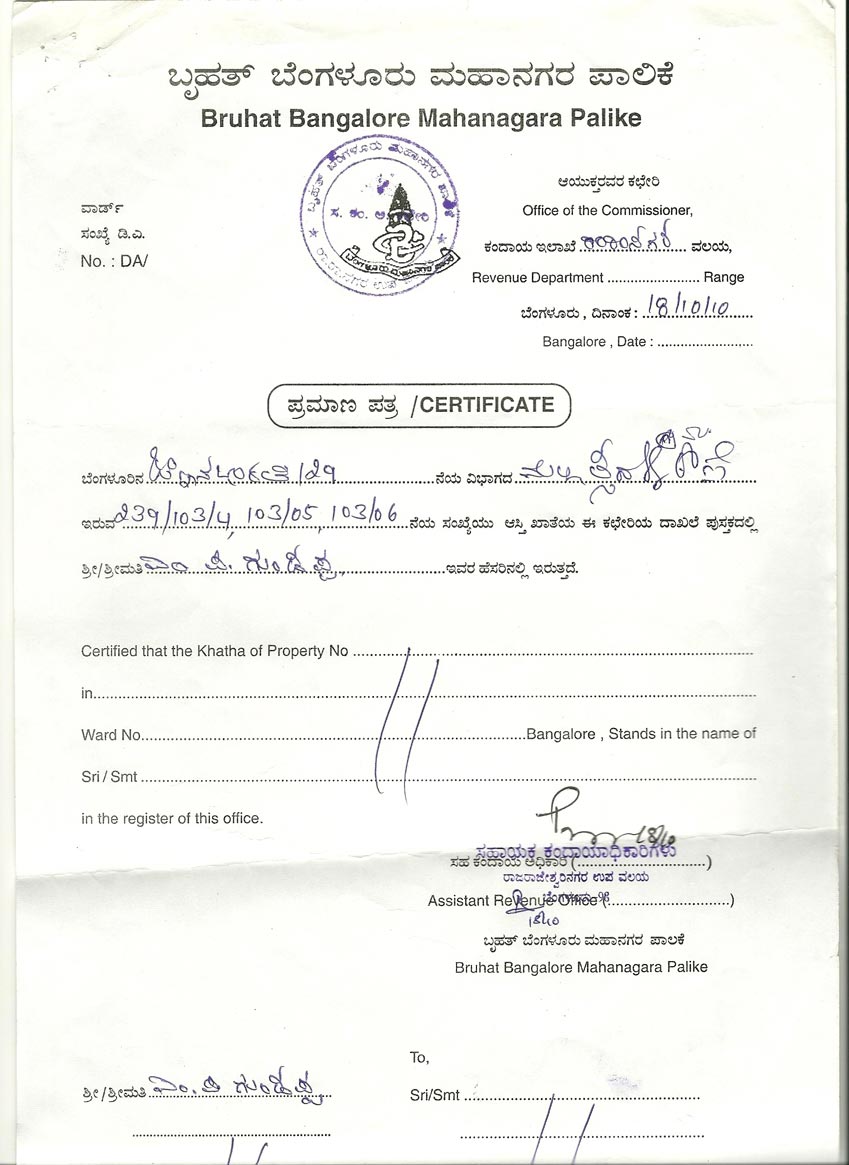 ಬೃಹತ್ ಬೆಂಗಳೂರು ಮಹಾನಗರ ಪಾಲಿಕೆ
Bruhat Bangalore Mahanagara Palike
ಬೃಹತ್ ಬೆಂಗಳೂರು ಮಹಾನಗರ ಪಾಲಿಕೆ
ಆಯುಕ್ತರವರ ಕಛೇರಿ
ವಾರ್ಡ್
Office of the Commissioner,
ಸಂಖ್ಯೆ ಡಿ.ಎ.
ಕಂದಾಯ ಇಲಾಖೆ ವಲಯ,
No. : DA/
Revenue Department ...................... Range
ಬೆಂಗಳೂರು , ದಿನಾಂಕ : 18/10/10
Bangalore , Date : .......................
ಪ್ರಮಾಣ ಪತ್ರ /CERTIFICATE
ಬೆಂಗಳೂರಿನ ನೆಯ ವಿಭಾಗದ
ಇರುವ 239/103/4, 103/05, 103/06 ನೆಯ ಸಂಖ್ಯೆಯು ಆಸ್ತಿ ಖಾತೆಯ ಈ ಕಛೇರಿಯ ದಾಖಲೆ ಪುಸ್ತಕದಲ್ಲಿ
ಶ್ರೀ/ಶ್ರೀಮತಿ ಎಂ ಪಿ. ಗುಂಡಪ್ಪ ಇವರ ಹೆಸರಿನಲ್ಲಿ ಇರುತ್ತದೆ.
Certified that the Khatha of Property No
in
Ward No. Bangalore , Stands in the name of
Sri / Smt
in the register of this office.
18/10
ಸಹಾಯಕ ಕಂದಾಯಾಧಿಕಾರಿಗಳು
ಸಹ ಕಂದಾಯ ಅಧಿಕಾರಿ (..............................)
ರಾಜರಾಜೇಶ್ವರಿನಗರ ಉಪ ವಲಯ
Assistant Revenue Office (.............................)
18/10
ಬೃಹತ್ ಬೆಂಗಳೂರು ಮಹಾನಗರ ಪಾಲಕೆ
Bruhat Bangalore Mahanagara Palike
To,
ಶ್ರೀ/ಶ್ರೀಮತಿ ಎಂ. ಪಿ ಗುಂಡಪ್ಪ
Sri/Smt